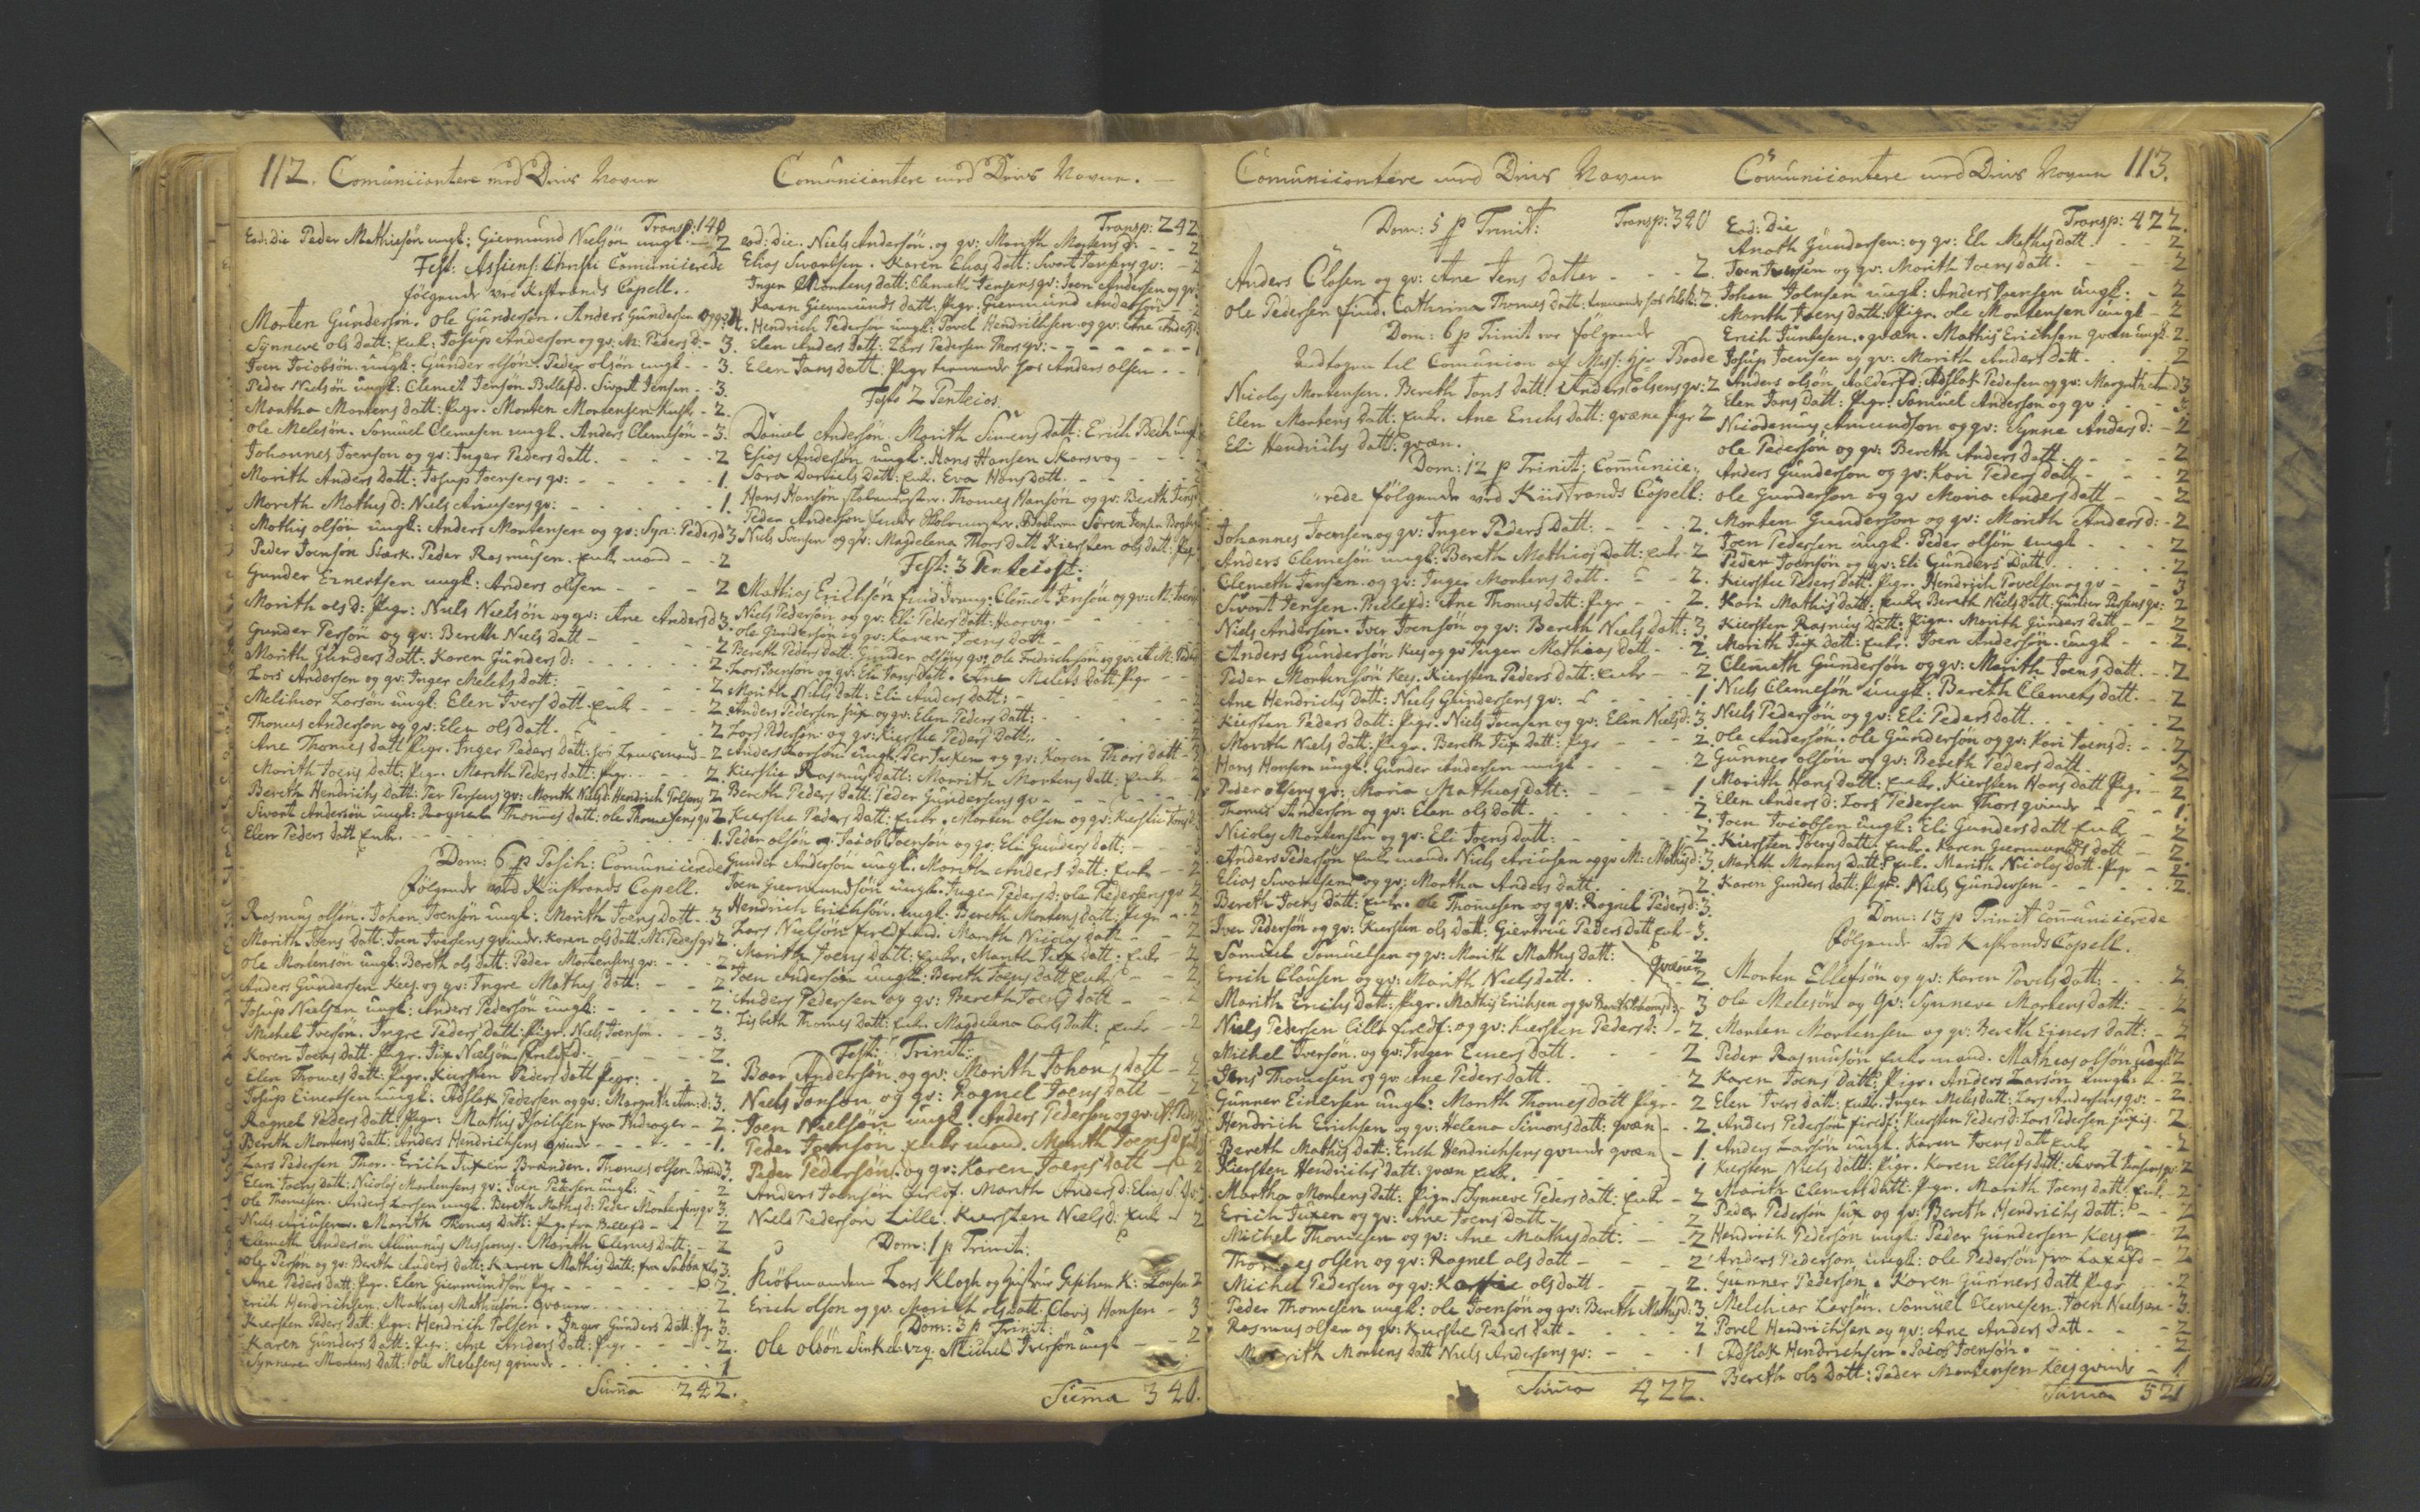 112. Comunicantere med Deris Navne
Transp: 140
Eod: die Peder Mathiesøn ungk: Giermund Nielsøn ungk 2
Fest: Assiens: Christi Comunicerede
følgende ved Kistrands Capell.
Morten Gundersøn. Ole Gundersøn. Anders Gundersen
Synneve ols datt: Enk: Josup Andersøn og gv: M: Peders d: - 3.
Joen Jacobsøn ungk: Gunder olsøn. Peder olsøn ungk - - 3.
Peder Nielsøn ungk: Clemet Jensøn Billefd. Sivert Jensen - - 3.
Martha Mortens datt: Pigr. Morten Mortensen - 2.
Ole Melesøn. Samuel Clemesen ungk. Anders Clemesøn - 3.
Johannes Joensøn og gv: Inger Peders datt. - - - 2
Marith Anders datt: Josup Joensens gv: - - - 1.
Mareth Mathis d: Niels Ariusens gv: - - - 1.
Mathis olsøn ungk: Anders Mortensen og gv: Syn: Peders d 3
Peder Joensøn Stærk. Peder Rasmusen. Enkemand - - 2
Gunder Einertsen ungk: Anders olsen - - - 2
Morith ols d: Pigr: Niels Nielsøn og gv: Ane Anders d 3.
Gunder Persøn og gv: Bereth Niels datt - - 2
Marith Gunders datt: Karen Gunders d: - - - 2.
Lars Andersen og gv: Inger Melets datt: - - - 2
Melchior Larsøn ungk: Elen Ivers datt. Enk - - - 2.
Thomes Andersøn og gv: Elen ols datt. - - - 2
Ane Thomes datt Pigr. Inger Peders datt: - 2
Marith Joens datt: Pigr. Marith Peders datt: Pigr. - - 2.
Bereth Hendrichs datt: Per Persens gv: Marith Niels d: Hendrich Polsens 2
Sivert Andersøn ungk: Ragnel Thomes datt: ole Thomesens gv 2
Elen Peders datt Enk. - - - 1.
Dom: 6 p Pasch: Comunicerede
følgende ved Kistrands Capell.
Rasmus olsøn. Johan Joensøn ungk: Marith Joens datt - 3
Marith Joens datt: Joen Iversens qvinde. Karen ols datt. M: Peders gv 2.
Ole Mortensøn ungk: Bereth ols datt: Peder Mortensens gv: - - - 2
Anders Gundersen Keej. og gv: Ingre Mathis datt: - - 2.
Josup Nielsen ungk: Anders Pedersøn ungk: - - - 2.
Michel Iversøn. Ingre Peders datt: Pigr. Niels Joensøn. - - 3.
Karen Joens datt. Pigr. Nielsøn - - - 2.
Elen Thomes datt: Pigr. Kiersten Peders datt Pigr: - - 2
Josup Einertsen ungk: Adslak Pedersen og gv: Margreth: And: d: 3.
Ragnel Peders datt: Pigr: Mathis fra - 2.
Bereth Mortens datt: Anders Hendrichsens qvinde - - - 1.
Lars Pedersen Thor. Erich Juxen Branden. Thomes olsen 3.
Elen Joens datt: Nicolaj Mortensens gv: Joen Pedersen ungk: - 2
Ole Thomesen. Anders Larsen ungk. Bereth Mathis d: Peder Mortensens gv 3.
Niels Ariusen. Marith Thomes datt: Pige fra Billefd - - 2
Clemeth Andersøn Alumnus Missions. Marith Clemes datt: - 2
Ole Persøn og gv: Bereth Anders datt: Karen Mathis datt: fra 3.
Ane Peders datt: Pigr. Elen Giermundsøn Pigr - - - 2.
Erich Hendrichsen. Mathias Mathiesøn. qvæner - - - 2
Kiersten Peders datt: Pigr: Hendrich Polsen. Inger Gunders datt: Pig. 3.
Karen Gunders datt: Pigr: Ane Anders datt: Pigr - - - 2.
Synneve Mortens datt: ole Melesens qvinde - - - 1
Suma 242.
Comunicantere med Deris Navne.
Transp: 242
eod: die. Niels Andersøn. og gv: Marith Mortens d: - - 2
Elias Sivertsen. Karen Elias datt: Sivert Jensens gv: - 2
Ingen Mortens datt: Clemeth Jensens gv: Joen Andersen og gv:
Karen Giermunds datt: Pigr: Giermund Andersøn - 2
Hendrich Pedersøn ungk: Povel Hendrichsen og gv: Ane Anders d
Elen Anders datt: Lars Pedersen Thors gv: - - - 1
Elen Jans datt: Pigr tienende hos Anders olsen - - 1
Festo 2 Penteios
Daniel Andersøn. Marith Simens datt: Erich Bech ungk
Esios Andersøn ungk. Hans Hansen Skarsvog - - -
Sara Daniels datt: Enk. Eva Hans datt. - - -
Hans Hansøn. Thomes Hansøn og gv: Bereth Jens
Peder Andersøn Søren Jensen
Niels Svensen og gv: Magdelena Thors datt Kiersten ols datt: Pig.
Fest: 3 Penteiost:
Mathias Erichsøn Clemet Jensøn og gv: M: Iver
Niels Pedersøn og gv: Eli Peders datt:
Ole Gundersøn og gv: Karen Joens datt - - -
Bereth Peders datt: Gunder olsøns gv: Ole Fredrichsøn og gv:
Lars Joensøn og gv: Eli Jans datt. Ane Melets datt Pigr - -
Marith Niels datt: Eli Anders datt:
Anders Pedersen Jux og gv: Elen Peders datt: - -
Lars Pedersøn og gv: Kierstie Peders datt: - -
Anders Larsøn ungk: Per Juxen og gv: Karen Thors datt - 3
Kierstie Rasmus datt: Marith Mortens datt: Enk - 2
Bereth Peders datt: Peder Gundersens gv - - -
Kierstie Peders datt: Enk. Morten olsen og gv: Kierstie Jons d
Peder olsøn Jacob Joensøn og gv: Eli Gunders datt: -
Gunder Andersøn ungk. Marith Anders datt: Enk - - 2
Joen Giermundsøn ungk. Inger Peders d: ole Pedersens gv 2
Hendrich Erichsøn. ungk: Bereth Mortens datt: Pigr - - 2
Lars Nielsøn Marith Nicolaj datt - - 2
Marith Joens datt: Enk. Marith Jux datt: Enk - 2
Joen Andersøn ungk: Bereth Joens datt Enk - - 2
Anders Pedersen og gv: Bereth Joens datt - - 2
Lisbeth Thomes datt: Enk. Magdelena Carls datt: Enk - - 2
Fest: Trinit:
Baar Andersøn. og gv: Morith Johans datt - 2
Niels Jonsøn og gv: Ragnel Joens datt - 2
Joen Nielsøn ungk. Anders Pedersøn og gv:
Peder Joensøn Enkemand. Marith Joens d
Peder Pedersøn og gv: Karen Joens datt - 2
Anders Joensøn Marith Anders d: Elias
Niels Pedersøn Lille. Kiersten Niels d: Enk - 2
Dom: 1 p Trinit:
Kiøbmanden Lars Klogh og K: 2
Erich olsøn og gv. Morith ols datt. Clavis Hansen - 3
Dom: 3 p Trinit:
Ole olsøn Michel Iversøn ungk - 2
Suma 340.
Comunicantere med Deris Navne
Dom: 5 p Trinit: Transp: 340
Anders Olosen og gv: Ane Jens datter - - - 2.
Ole Pedersen find. Cathrina Thomes datt: 2.
Dom: 6 p Trinit var følgende
Andtagen til Comunion af Miss: Hr Boade
Nicolaj Mortensen. Bereth Jons datt: Anders olsens gv: 2
Elen Mortens datt: Enk. Ane Erichs datt: qvæne Pigr 2
Eli Hendrichs datt: qvæn.
Dom: 12 p Trinit: Comunice-
rede følgende ved Kiistrands Capell:
Johannes Joensen og gv: Inger Peders datt: - - - 2.
Anders Clemesøn ungk: Bereth Mathias datt: Enk - 2
Clemeth Jensen. og gv: Inger Mortens datt. - - 2.
Sivert Jensen. Billefd: Ane Thomes datt: Pigr - - 2.
Niels Andersen. Iver Joensøn og gv: Bereth Niels datt: 3.
Anders Gundersøn Keej og gv Inger Mathias datt - - 2.
Peder Mortensøn Keej. Kiersten Peders datt: Enk - - 2.
Ane Hendrichs datt: Niels Gundersens gv: - - - 1
Kiersten Peders datt: Pigr. Niels Joensen og gv: Elen Niels d: 3.
Marith Niels datt: Pigr. Bereth Jux datt: Pigr - - - 2.
Hans Hansen ungk: Gunder Andersen ungk - - - 2
Peder olsens gv: Maria Mathias datt: - - - 1
Thomes Andersøn og gv: Elen ols datt. - - - 2.
Nicolaj Mortensen og gv: Eli Joens datt: - - - 2
Anders Pedersøn Enkemand. Niels Ariusen og gv M: Mathis d: 3.
Elias Sivertsen og gv: Martha Anders datt - - 2.
Bereth Joens datt: Enk. Ole Thomesen og gv: Ragnel Peders d: 3.
Iver Pedersøn og gv: Kiersten ols datt: Giertrue Peders datt Enk - 3.
Samuel Samuelsen og gv: Marith Mathis datt: qvæner 2
Erich Clausen og gv: Marith Niels datt. 2.
Marith Erichs datt: Pigr. Mathis Erichsen og gv 3
Niels Pedersen Lille og gv: Kiersten Peders d: - 2.
Michel Iversøn. og gv: Inger Einers datt. - - 2
Jens Thomesen og gv Ane Peders datt. 2
Gunner Einersen ungk: Marith Thomes datt Pigr - 2
Hendrich Erichsen og gv: Helena Simons datt: qvæn - 2.
Bereth Mathis datt: Erich Hendrichsens qvinde qvæn - 1.
Kiersten Hendrichs datt: qvæn Enk. 1
Martha Mortens datt: Pigr. Synneve Peders datt: Enk - 2
Erich Juxen og gv: Ane Joens datt - - 2
Michel Thomesen og gv: Ane Mathis datt: - - 2
Thomes olsen og gv: Ragnel ols datt - - - 2
Michel Pedersen og gv: ols datt - - 2.
Peder Thomesen ungk: ole Joensøn og gv: Bereth Mathis d: 3.
Rasmus olsen og gv: Kierstie Peders datt - - - 2
Marith Mortens datt Niels Andersens gv: - - - 1
Suma 422.
Comunicantere med Deris Navne 113.
Eod: Die Transp: 422.
Anoth Gundersen: og gv: Eli Mathis datt - - 2
Joen Iversen og gv: Morith Joens datt. - - 2
Johan Joensen ungk: Anders Joensen ungk: - 2
Marith Joens datt: Pigr. ole Mortensen ungk - 2
Erich Juntesen. qvæn. Mathis Erichsen qvæn ungk 2.
Josup Joensen og gv: Marith Anders datt - - 2
Anders olsøn Adslak Pedersen og gv: Margreth And: d 3
Elen Jans datt: Pigr. Samuel Andersøn og gv - - 3.
Nicodemus Amundsøn og gv: Synne Anders d: - 2
Ole Pedersøn og gv: Bereth Anders datt - - 2
Anders Gundersøn og gv: Kari Peders datt - - 2
Ole Gundersøn og gv Maria Anders datt - - 2
Morten Gundersøn og gv: Morith Anders d: - 2
Joen Pedersen ungk. Peder olsøn ungk - - 2
Peder Joensøn og gv: Eli Gunders datt. - - 2
Kierstie Peders datt: Pigr. Hendrich Povelsen og gv - - 3
Kari Mathis datt: Enk. Bereth Niels datt: Gunder Persens gv: 2
Kiersten Rasmus datt: Pigr. Marith Gunders datt - - 2
Marith Jux datt: Enk. Joen Andersøn. ungk - 2.
Clemeth Gundersøn og gv: Marith Joens datt. - 2
Niels Clemesøn ungk: Bereth Clemets datt - 2
Niels Pedersøn og gv: Eli Peders datt. - - 2
Ole Andersøn. ole Gundersøn og gv: Kari Joens d: - - 3
Gunner olsøn og gv: Bereth Peders datt - - 2
Marith Hans datt: Enk. Kiersten Hans datt Pigr - 2
Elen Anders d: Lars Pedersen Thors qvinde - - 1.
Joen Jacobsen ungk: Eli Gunders datt Enk - - 2
Kiersten Joens datt: Enk. Karen Giermunds datt - 2.
Marith Mortens datt: Enk. Marith Nicolaj datt. Pigr - 2.
Karen Gunders datt: Pigr. Niels Gundersen - - - 2.
Dom: 13 p Trinit Comunicerede
følgende ved Kistrands Capell.
Morten Ellefsøn og gv: Karen Povels datt: - - 2
Ole Melesøn og gv: Synneve Mortens datt: - 2
Morten Mortensen og gv: Bereth Einers datt: - 2
Peder Rasmusøn Enkemand. Mathias olsøn ungk 2
Karen Joens datt: Pigr. Anders Larsøn ungk: - 2.
Elen Ivers datt: Enk. Inger Meles datt: Lars Andersens gv: - 2.
Anders Pedersøn Kiersten Peders d: Lars Pedersen 2
Anders Larsøn ungk: Karen Joens datt Enk - - 2
Kiersten Niels datt: Pigr. Karen Ellefs datt: Sivert Jensens gv 2
Marith Clemets datt: Pigr. Marith Joens datt: Enk. - 2
Peder Pedersøn Jux og gv: Bereth Hendrichs datt: - - 2
Hendrich Pedersøn ungk: Peder Gundersen Keej - 2
Anders Pedersøn ungk: ole Pedersøn fra Laxefd - 2
Gunner Pedersøn. Karen Gunners datt Pigr - - 2
Melchior Larsøn. Samuel Clemesen. Joen Nielsøn - 3
Povel Hendrichsen og gv: Ane Anders datt - - 2
Adslak Hendrichsen. Jacob Joensøn. - - 2
Bereth ols datt: Peder Mortensen Keej qvinde - 1
Suma 521